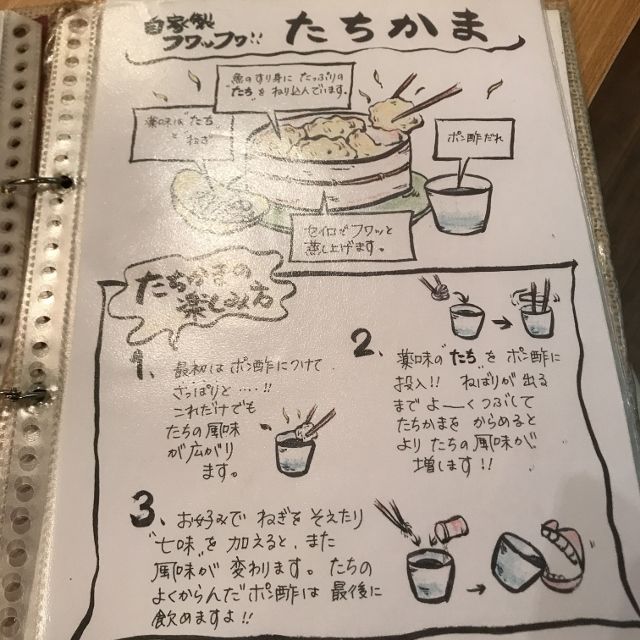 自家製
フワッフワ!!
たちかま
魚のすり身に たっぷりの
"たち"をねり込んでいます。
薬味は"たち"
と
ねぎ
ポン酢だれ
セイロでフワッと
蒸し上げます。
たちかまの
楽しみ方
1、最初はポン酢につけて
さっぱりと……!!
これだけでも
たちの風味
が広がり
ます。
2、薬味の"たち"をポン酢に
投入!! ねばりが出る
までよーくつぶして
たちかまを からめると
より たちの風味が
増します!!
3、お好みで ねぎを そえたり
"七味"を 加えると、また
風味が 変わります。たちの
よくからんだポン酢は 最後に
飲めますよ!!